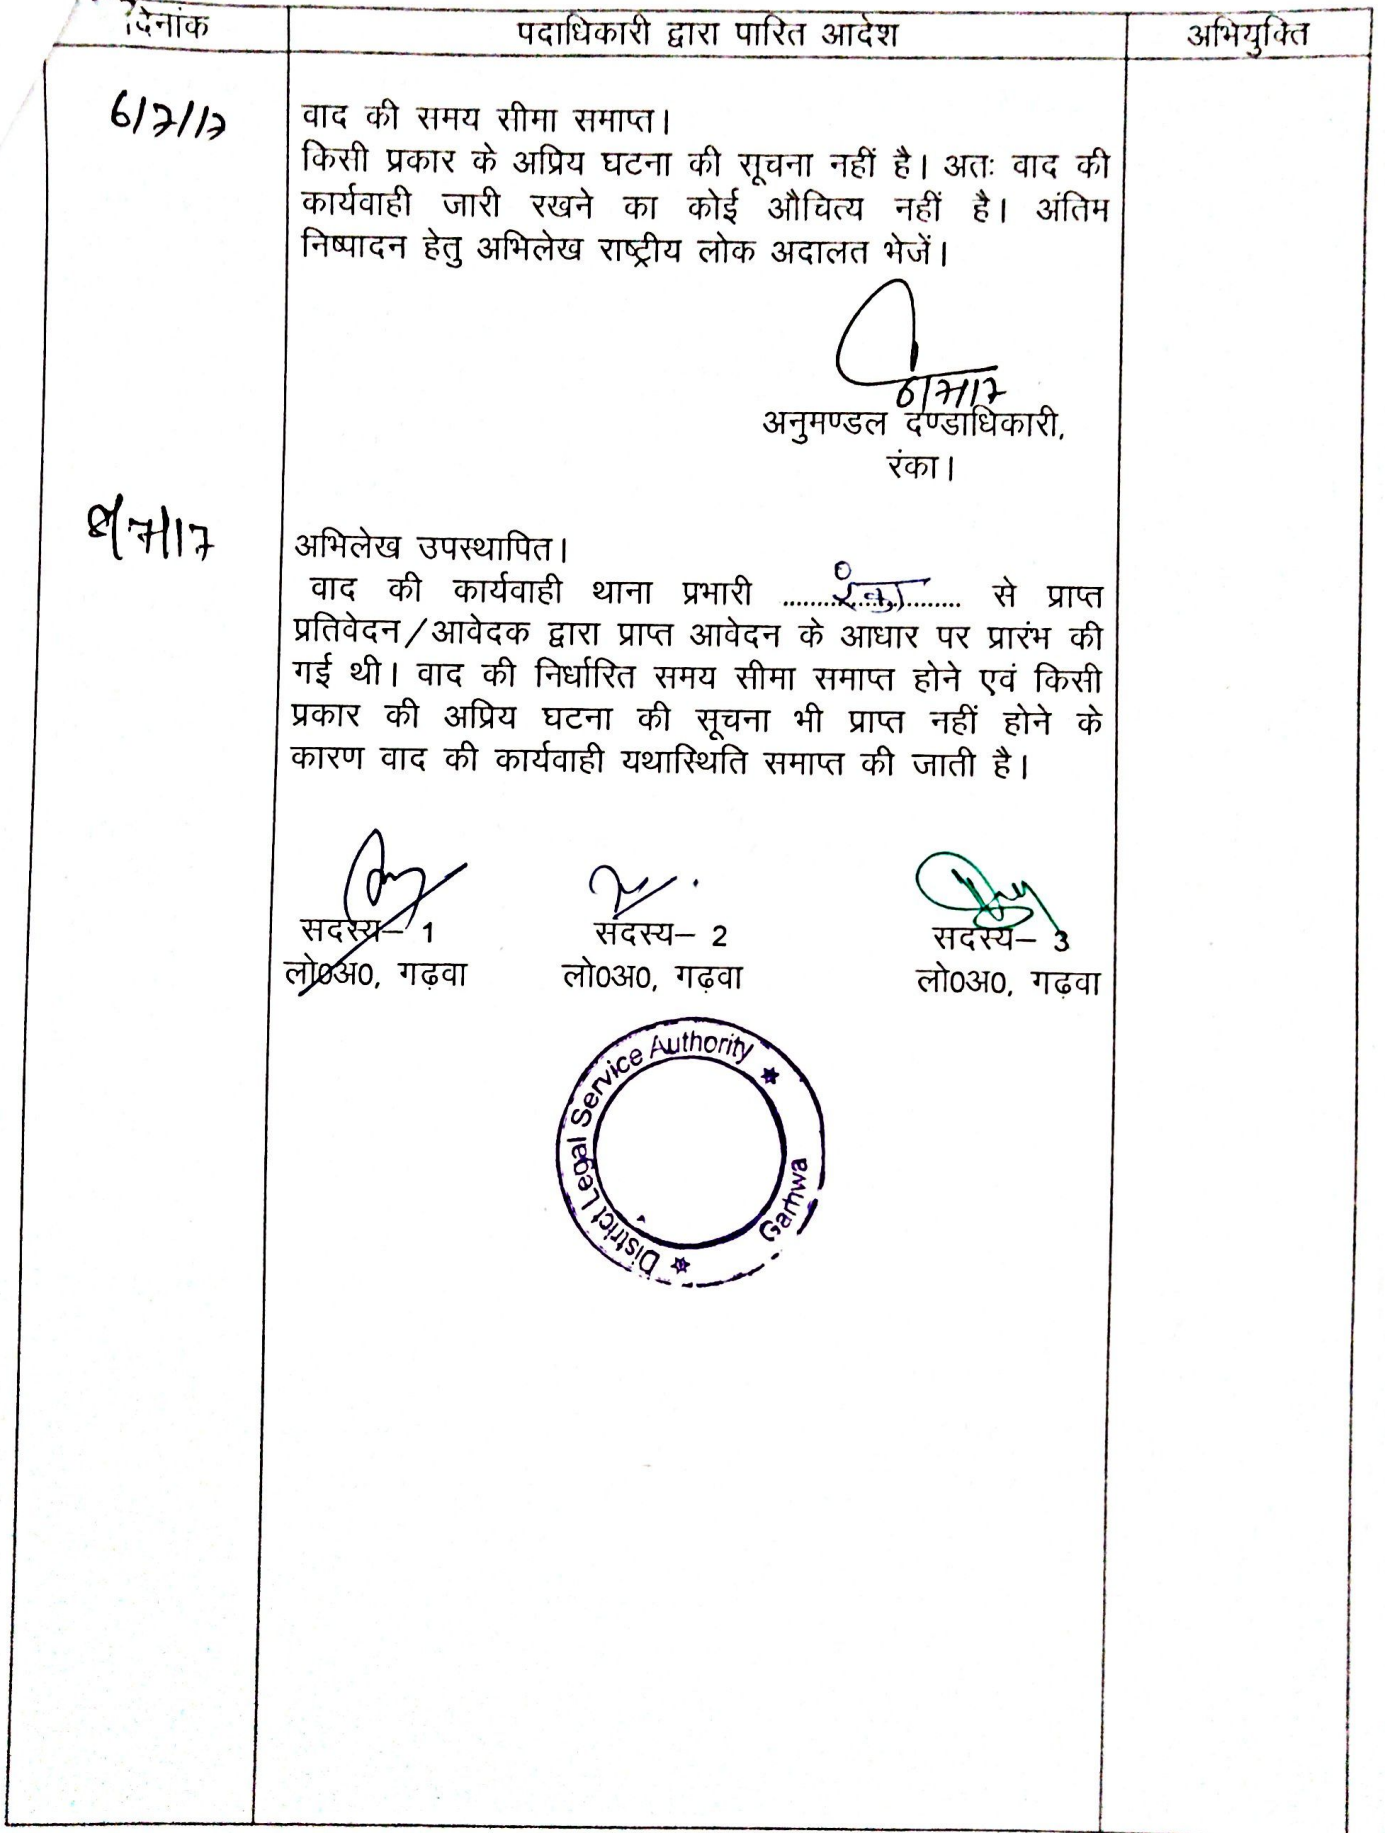 दिनांक पदाधिकारी द्वारा पारित आदेश अभियुक्ति
6/7/17 वाद की समय सीमा समाप्त।
किसी प्रकार के अप्रिय घटना की सूचना नहीं है। अतः वाद की
कार्यवाही जारी रखने का कोई औचित्य नहीं है। अंतिम
निष्पादन हेतु अभिलेख राष्ट्रीय लोक अदालत भेजें।
6/7/17
अनुमण्डल दण्डाधिकारी,
रंका।
8/7/17 अभिलेख उपस्थापित।
वाद की कार्यवाही थाना प्रभारी ......रंका...... से प्राप्त
प्रतिवेदन/आवेदक द्वारा प्राप्त आवेदन के आधार पर प्रारंभ की
गई थी। वाद की निर्धारित समय सीमा समाप्त होने एवं किसी
प्रकार की अप्रिय घटना की सूचना भी प्राप्त नहीं होने के
कारण वाद की कार्यवाही यथास्थिति समाप्त की जाती है।
सदस्य– 1 सदस्य– 2 सदस्य– 3
लो0अ0, गढ़वा लो0अ0, गढ़वा लो0अ0, गढ़वा
District Legal Service Authority
Garhwa